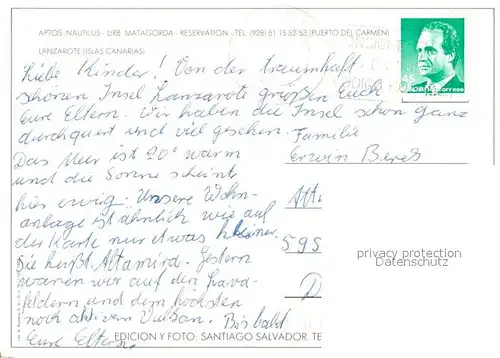 APTOS NAUTILUS - URB MATAGORDA - RESERVATION - TEL (928) 51 15 52 53 (PUERTO DEL CARMEN)
LANZAROTE (ISLAS CANARIAS)
45
españa correos
Liebe Kinder! Von der traumhaft
schönen Insel Lanzarote grüßen Euch
Eure Eltern. Wir haben die Insel schon ganz
durchquert und viel gesehen.
Das Meer ist 20° warm
und die Sonne scheint
hier ewig. Unsere Wohn-
anlage ist ähnlich wie auf
der Karte nur etwas kleiner.
Sie heißt Altamira. Gestern
waren wir auf den Lava-
feldern und dem höchsten
noch aktiven Vulkan. Bis bald
Eure Eltern
Familie
Erwin
595
D
privacy protection
Datenschutz
EDICION Y FOTO: SANTIAGO SALVADOR. TE